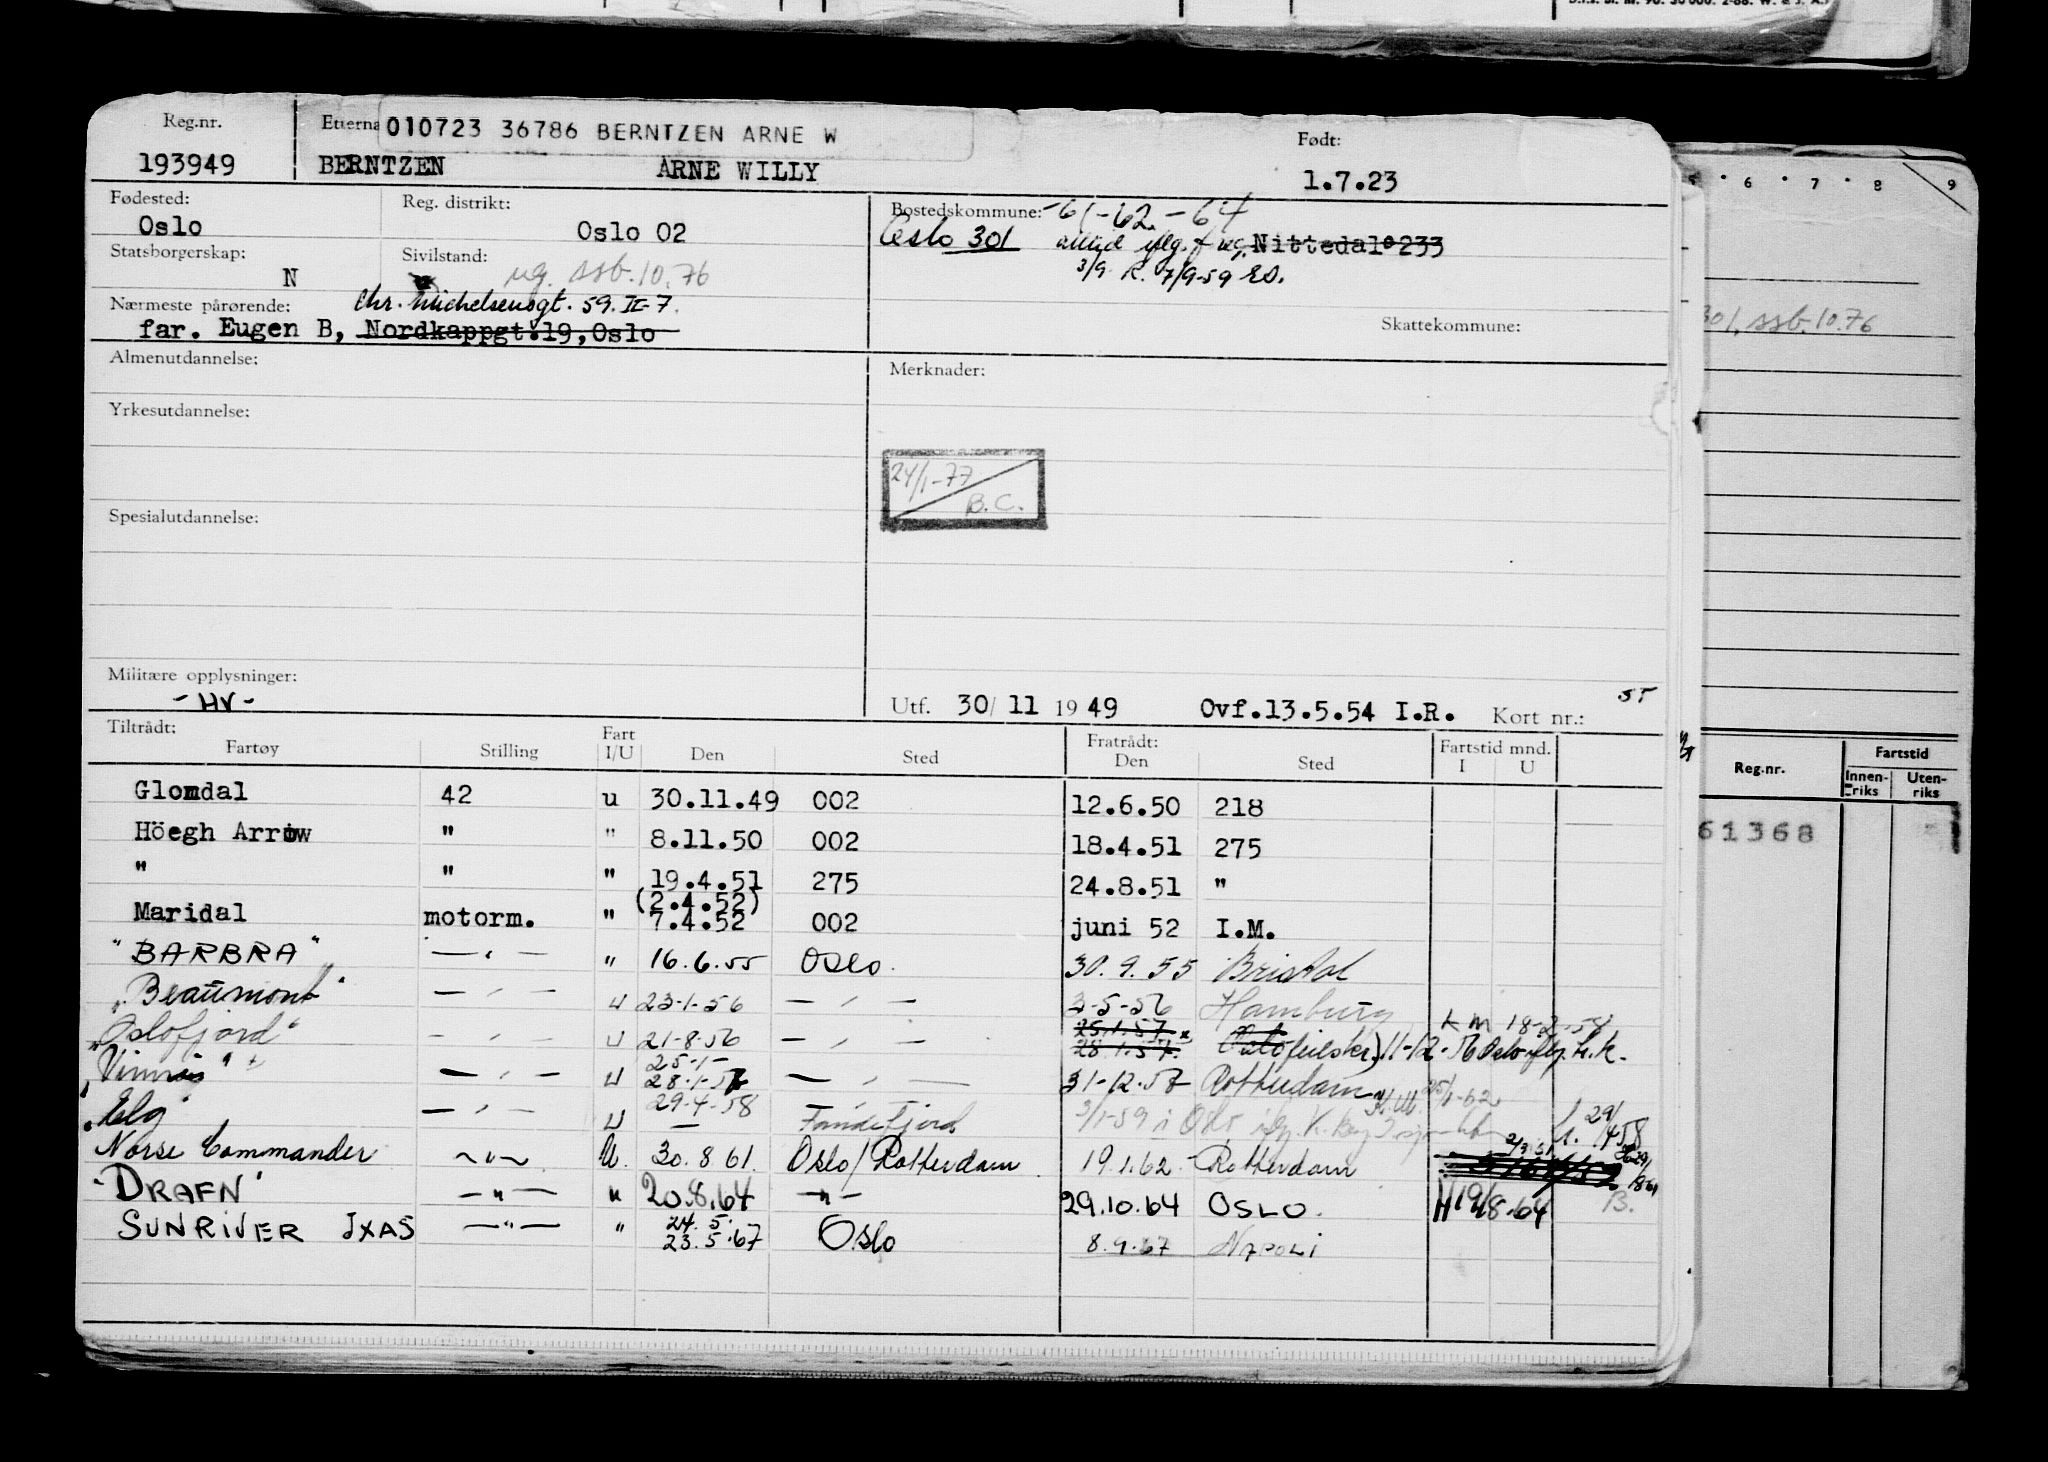 Reg.nr.
193949
010723 36786 BERNTZEN ARNE W
BERNTZEN ARNE WILLY
Født:
1.7.23
Fødested:
Oslo
Reg. distrikt:
Oslo 02
Bostedskommune: -61-62-64
Oslo 301
Nittedal 0233
3/9 R. 7/9-59
Statsborgerskap:
N
Sivilstand:
ug. ssb. 10.76
Nærmeste pårørende: Chr. Michelsensgt. 59. II-7.
far. Eugen B, Nordkappgt. 19, Oslo
Skattekommune:
Almenutdannelse:
Merknader:
Yrkesutdannelse:
24/1-77
B.C.
Spesialutdannelse:
Militære opplysninger:
- HV -
Utf. 30/ 11 1949 Ovf.13.5.54 I.R. Kort nr.:
Tiltrådt:
Fartøy Stilling Fart I/U Den Sted Fratrådt: Den Sted Fartstid mnd. I U
Glomdal 42 u 30.11.49 002 12.6.50 218
Höegh Arrow " " 8.11.50 002 18.4.51 275
" " " 19.4.51 275 24.8.51 "
(2.4.52)
Maridal motorm. " 7.4.52 002 juni 52 I.M.
"BARBRA" — " — " 16.6.55 Oslo. 30.9.55 Bristol
"Beaumont" — " — u 23-1-56 — " — 3-5-56 Hamburg
"Oslofjord" — " — u 21-8-56 — " — 25.1.57 K m 18-2-58
28.1.57 11-12-56 Oslo
25-1-
— " — u 28-1-57 — " — 31-12-57 Rotterdam
"Elg" — " — u 29-4-58 3/1-59 i Oslo
Norse Commander — " — U. 30.8 61. Oslo/Rotterdam 19.1.62 Rotterdam
"DRAFN" — " — " 20.8.64 — " — 29.10.64 OSLO.
SUNRIVER JXAS — " — " 24.5.
23.5.67 Oslo 8.9.67 NAPOLI
6 7 8 9
301, ssb. 10.76
Reg.nr. Fartstid
Innenriks Utenriks
61368